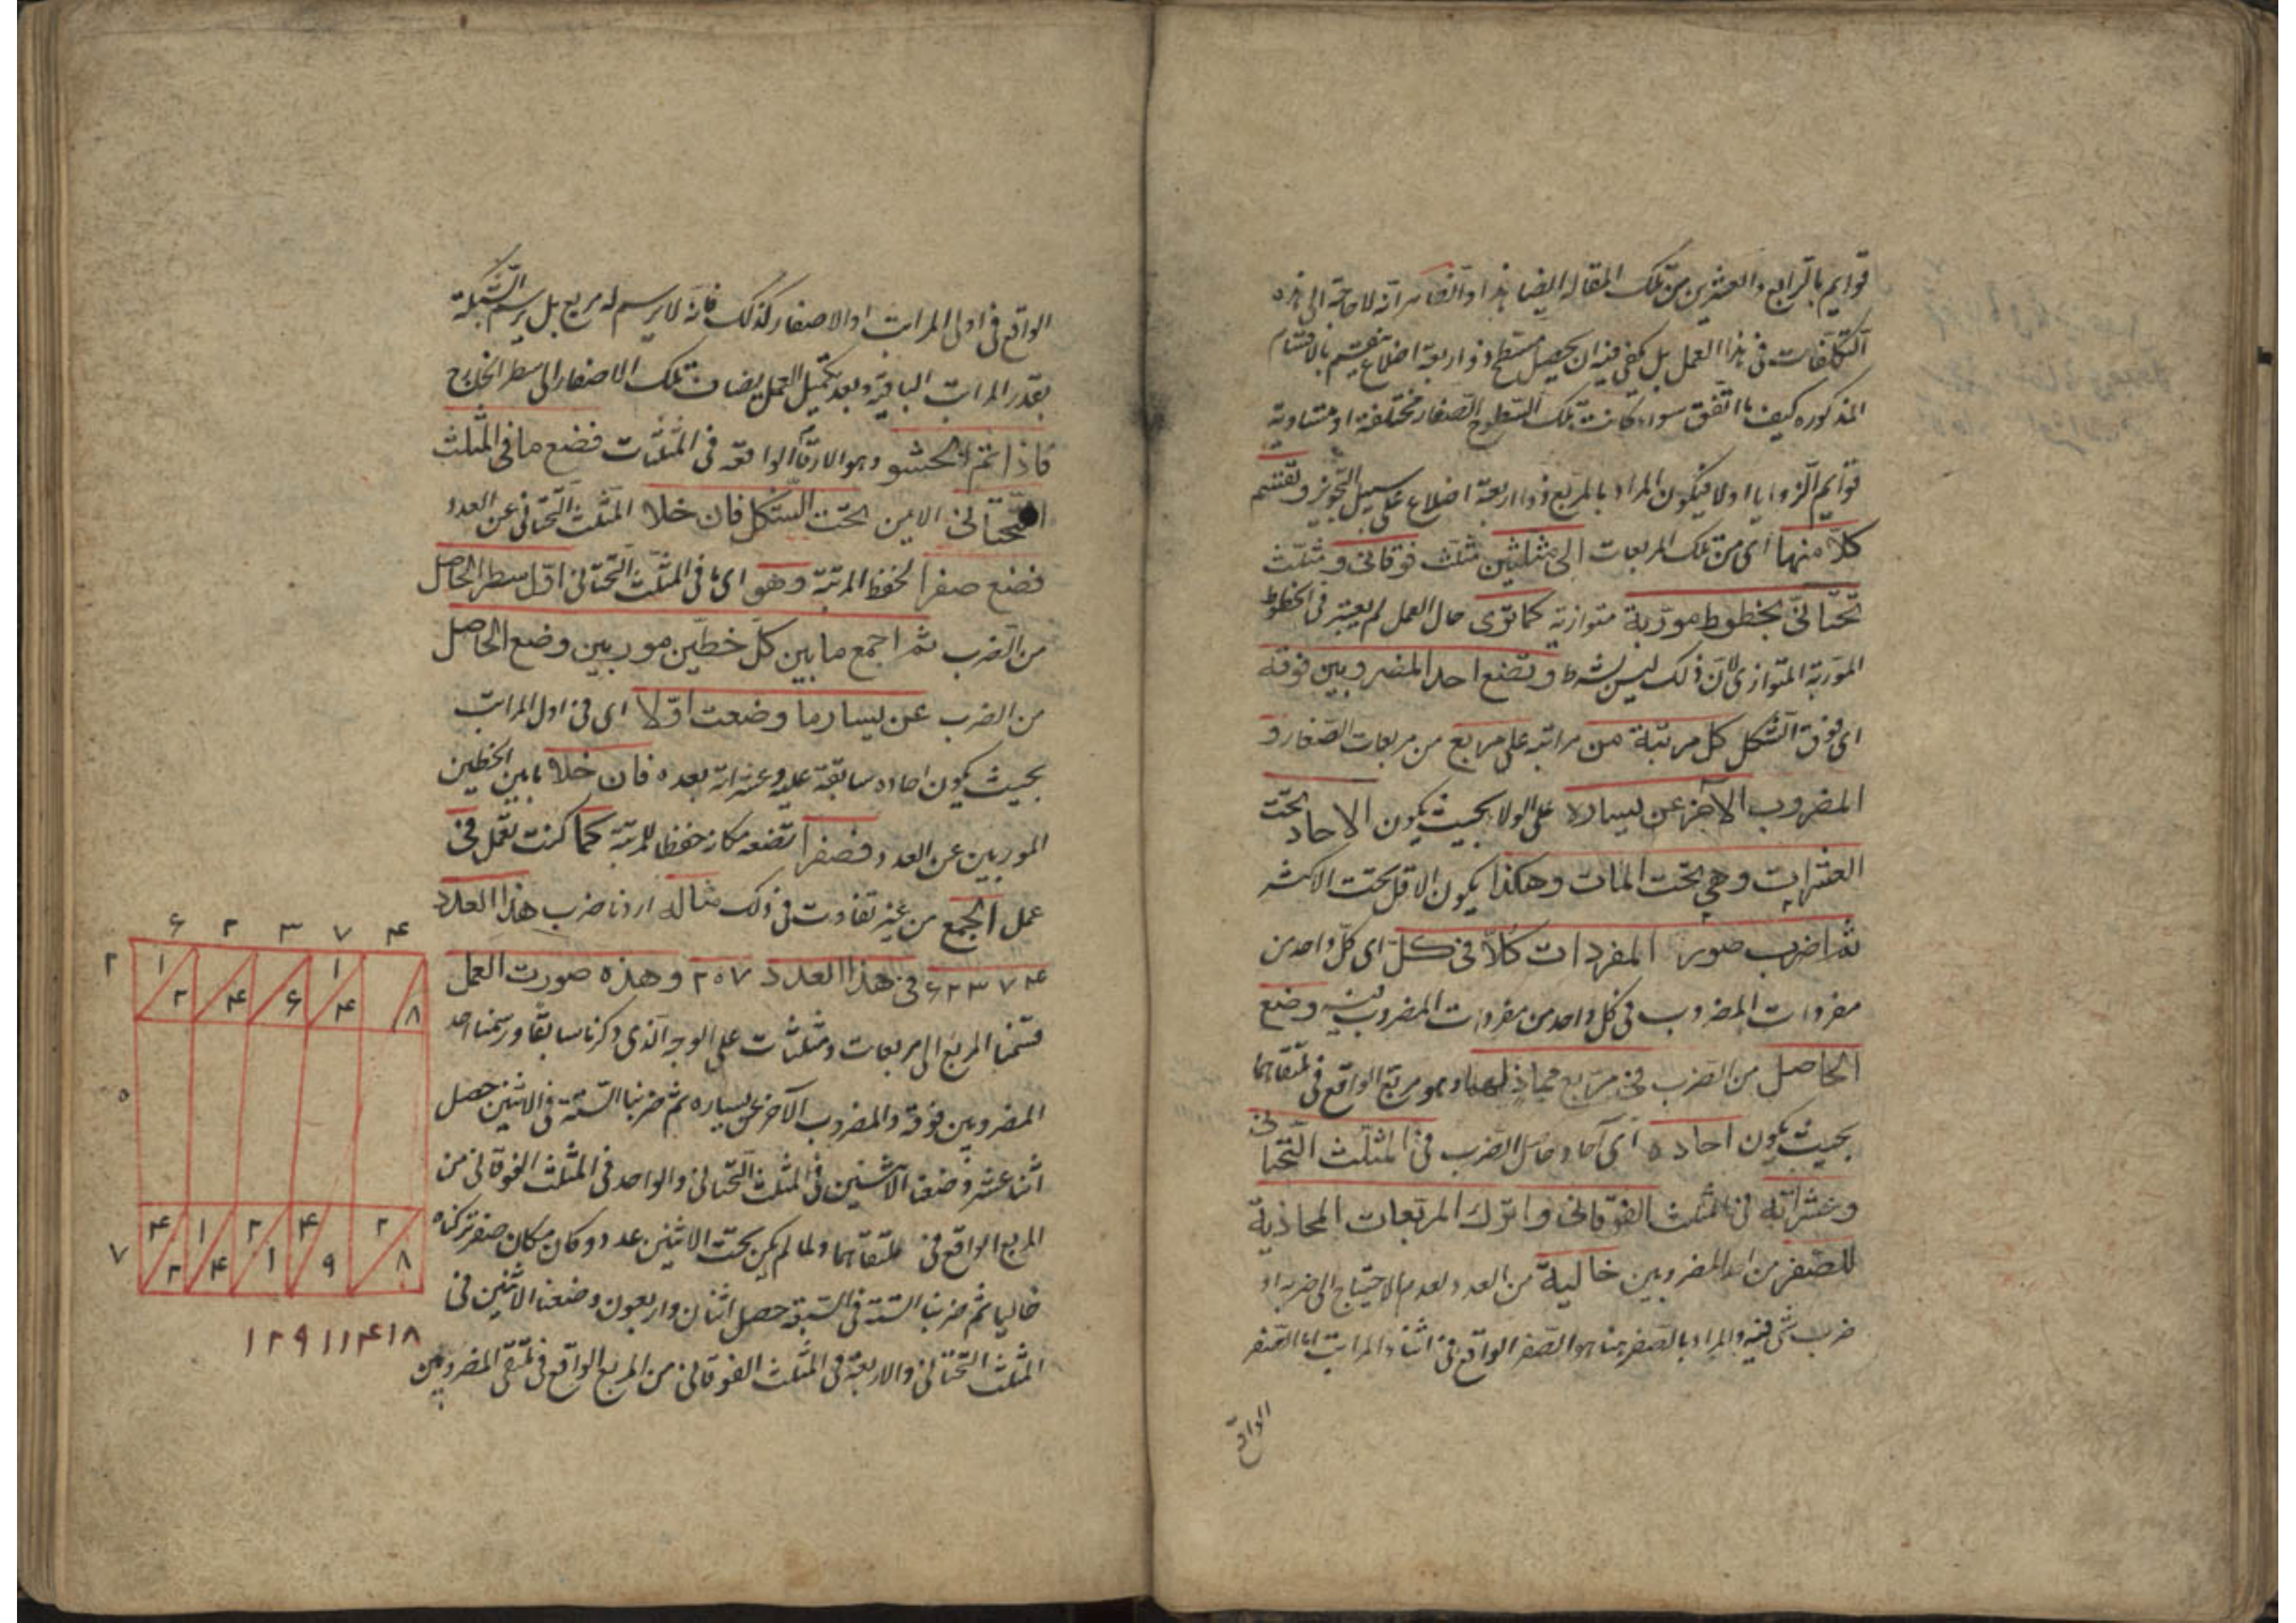 قوايم بالرابع والعشرين من تلك المقالة ايضا هذا وانت انه لا حاجة الى هذه
التكلفات فى هذا العمل بل يكفى فيه ان يحصل مسطح ذو اربعة اضلاع ينقسم بالاقسام
المذكوره كيف ما اتفق سواء كانت تلك السطوح الصغار مختلفة او متساوية
قوايم الزوايا اولا فيكون المراد بالمربع ذو اربعة اضلاع على سبيل التجويز وتقسم
كلا منها اى من تلك المربعات الى مثلثين مثلث فوقانى ومثلث
تحتانى بخطوط موربة متوازية كما ترى حال العمل لم يعتبر فى الخطوط
الموربة المتوازى لان ذلك ليس بشرط وتضع احد المضروبين فوقه
اى فوق الشكل كل مرتبة من مراتبه على مربع من مربعات الصغار و
المضروب الآخر عن يساره على الولا بحيث يكون الاحاد تحت
العشرات وهى تحت المات وهكذا يكون الاقل تحت الاكثر
ثم اضرب صور المفردات كلا فى كل اى كل واحد من
مفردات المضروب فى كل واحد من مفردات المضروب فيه وضع
الحاصل من الضرب فى مربع يحاذيهما وهو مربع الواقع فى ملتقاهما
بحيث يكون احاده اى آحاد حاصل الضرب فى المثلث التحتانى
وعشراته فى المثلث الفوقانى واترك المربعات المحاذية
للصفر من احد المضروبين خالية من العدد لعدم الاحتياج الى ضربه او
ضرب شى فيه والمراد بالصفر هنا هو الصفر الواقع فى اثناء المراتب اما الصفر
الواقع
الواقع فى اولى المراتب او الاصفار كذلك فانه لا يرسم له مربع بل يرسم الشبكة
بقدر المراتب الباقية وبعد تكميل العمل يضاف تلك الاصفار الى سطر الخارج
فاذا تم الحشو وهو الارقام الواقعه فى المثلثات فضع ما فى المثلث
التحتانى الايمن تحت الشكل فان خلا المثلث التحتانى عن العدد
فضع صفرا لحفظ المرتبة وهو اى ما فى المثلث التحتانى اول سطر الحاصل
من الضرب ثم اجمع ما بين كل خطين موربين وضع الحاصل
من الضرب عن يسار ما وضعت اولا اى فى اول المراتب
بحيث يكون احاده سابقة عليه وعشراته بعده فان خلا ما بين الخطين
الموربين عن العدد فصفرا تضعه مكانه حفظا للمرتبة كما كنت تعمل فى
عمل الجمع من غير تفاوت فى ذلك مثاله اردنا ضرب هذا العدد
۶۲۳۷۴ فى هذا العدد ۲۰۷ وهذه صورت العمل
قسمنا المربع الى مربعات ومثلثات على الوجه الذى ذكرنا سابقا ورسمنا احد
المضروبين فوقه والمضروب الآخر عن يساره ثم ضربنا الستة فى الاثنين حصل
اثنا عشر وضعنا الاثنين فى المثلث التحتانى والواحد فى المثلث الفوقانى من
المربع الواقع فى ملتقاهما ولما لم يكن تحت الاثنين عدد وكان مكان صفر تركناه
خاليا ثم ضربنا الستة فى السبعة حصل اثنان واربعون وضعنا الاثنين فى
المثلث التحتانى والاربعة فى المثلث الفوقانى من المربع الواقع فى ملتقى المضروبين
۶ ۲ ۳ ۷ ۴
۲ ۱ ۲ ۴ ۶ ۱ ۴ ۸
۰
۷ ۴ ۲ ۱ ۴ ۲ ۱ ۴ ۹ ۲ ۸
۱۲۹۱۱۴۱۸